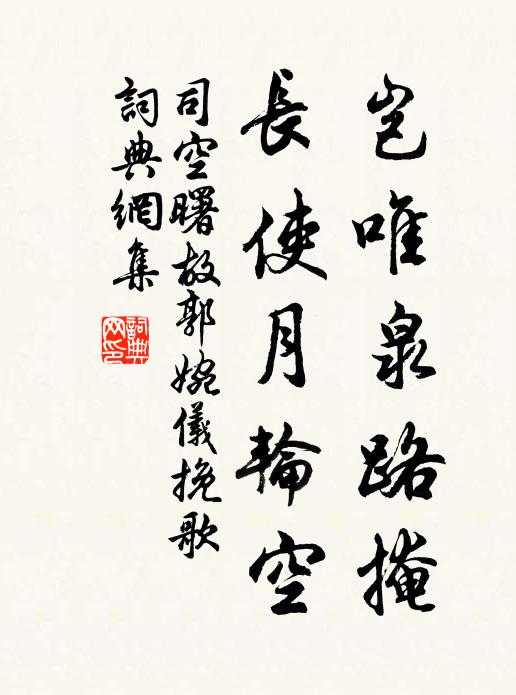 豈唯泉路掩
長使月輪空
司空曙故郭婉儀挽歌
詞典網集
詞典
网印